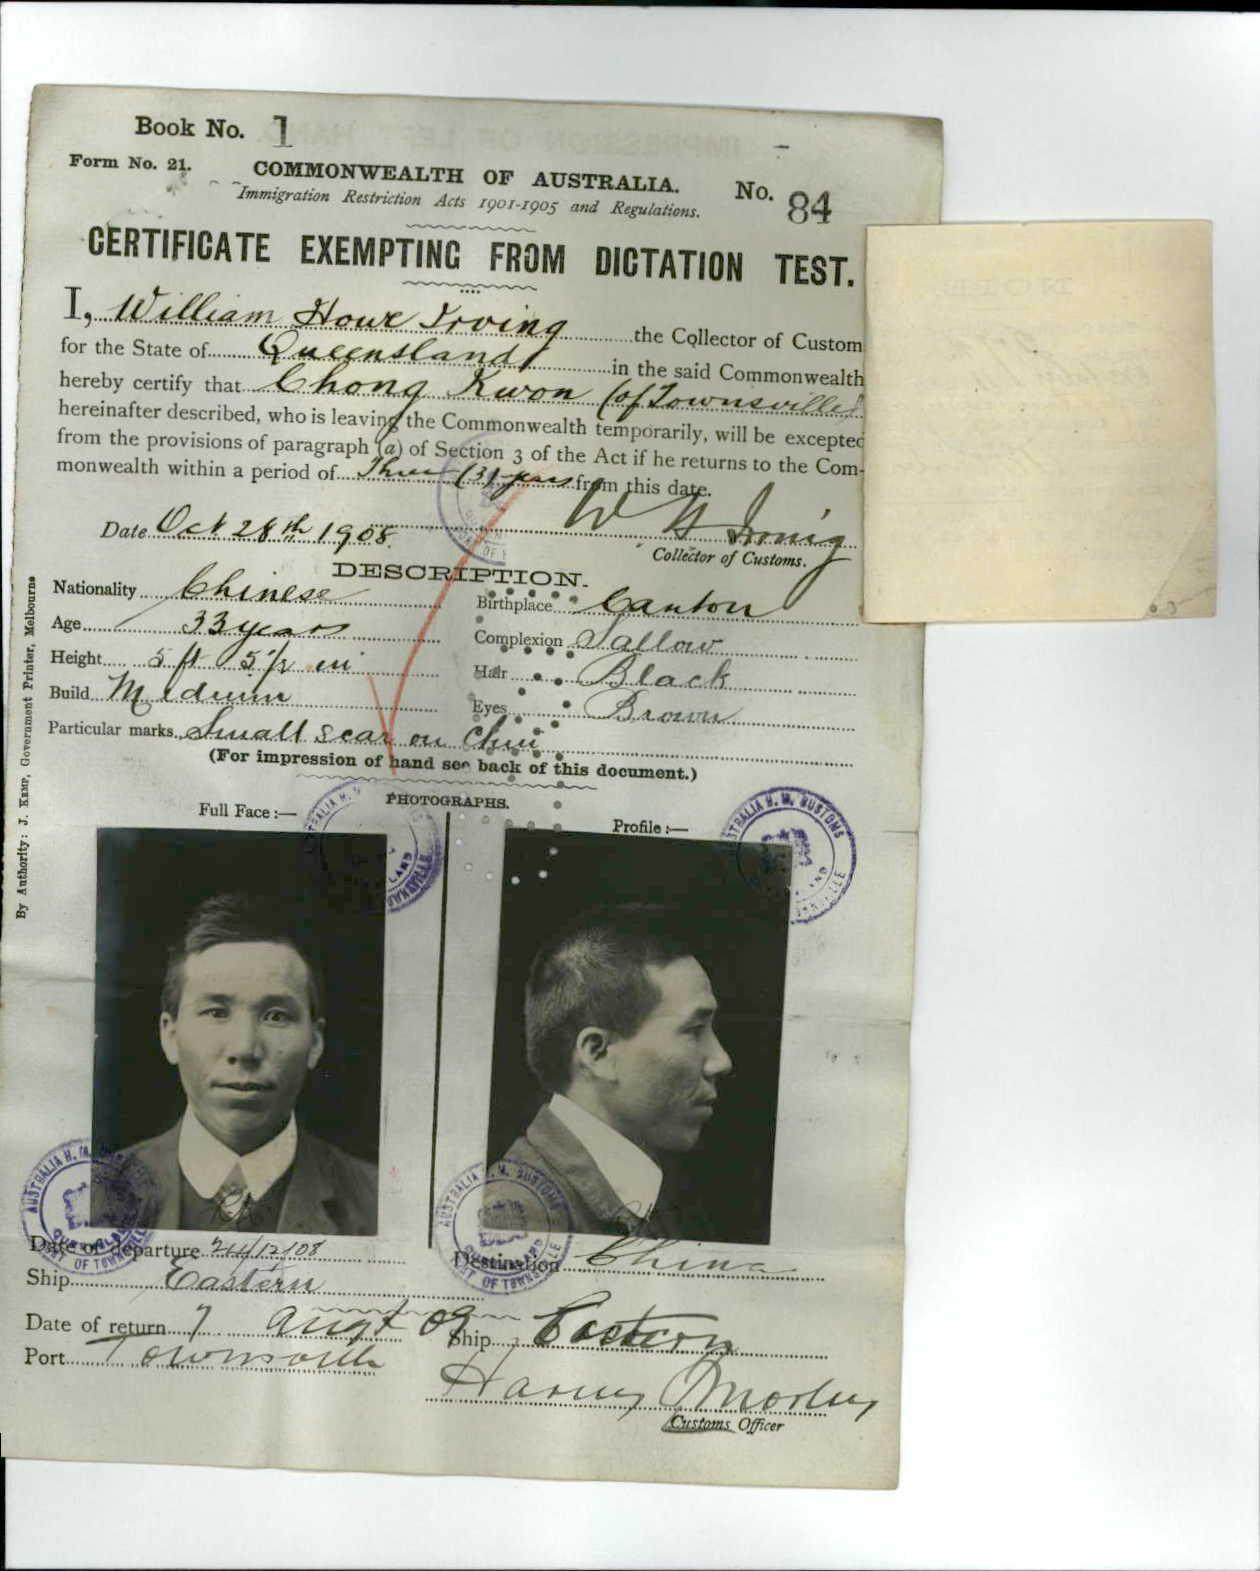 Book No. 1
Form No. 21.
COMMONWEALTH OF AUSTRALIA.
No. 84
Immigration Restriction Acts 1901-1905 and Regulations.
CERTIFICATE EXEMPTING FROM DICTATION TEST.
I, William Howe Irving the Collector of Custom
for the State of Queensland in the said Commonwealth
hereby certify that Chong Kwon (of Townsville)
hereinafter described, who is leaving the Commonwealth temporarily, will be excepted
from the provisions of paragraph (a) of Section 3 of the Act if he returns to the Com-
monwealth within a period of Three (3) years from this date.
W H Irving
Date Oct 28th 1908.
Collector of Customs.
DESCRIPTION.
Nationality Chinese
Birthplace Canton
Age 33 years
Complexion Sallow
Height 5 ft 5½ in
Hair Black
Build Medium
Eyes Brown
Particular marks Small scar on Chin
(For impression of hand see back of this document.)
PHOTOGRAPHS.
Full Face :—
Profile :—
AUSTRALIA H. M. CUSTOMS
AUSTRALIA H. M.
QUEENSLAND
PORT OF TOWNSVILLE
AUSTRALIA H. M. CUSTOMS
QUEENSLAND
PORT OF TOWNSVILLE
Date of departure 24/12/08
Destination China
Ship Eastern
Date of return 7 Augt 09
Ship Eastern
Port Townsville
Customs Officer
By Authority: J. KEMP, Government Printer, Melbourne